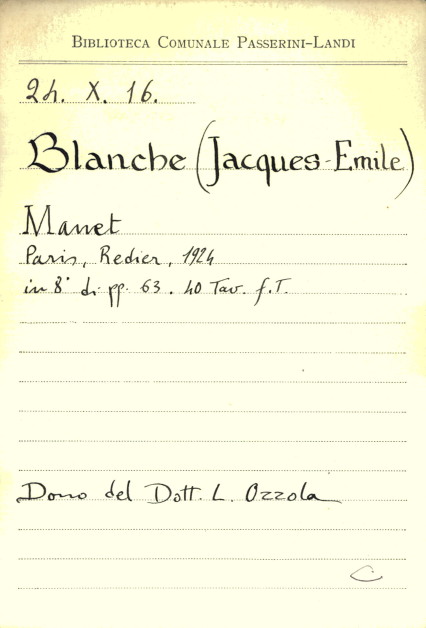 BIBLIOTECA COMUNALE PASSERINI-LANDI
24. X. 16.
Blanche (Jacques-Emile)
Manet
Paris, Redier, 1924
in 8° di pp. 63. 40 Tav. f.T.
Dono del Dott. L. Ozzola
C